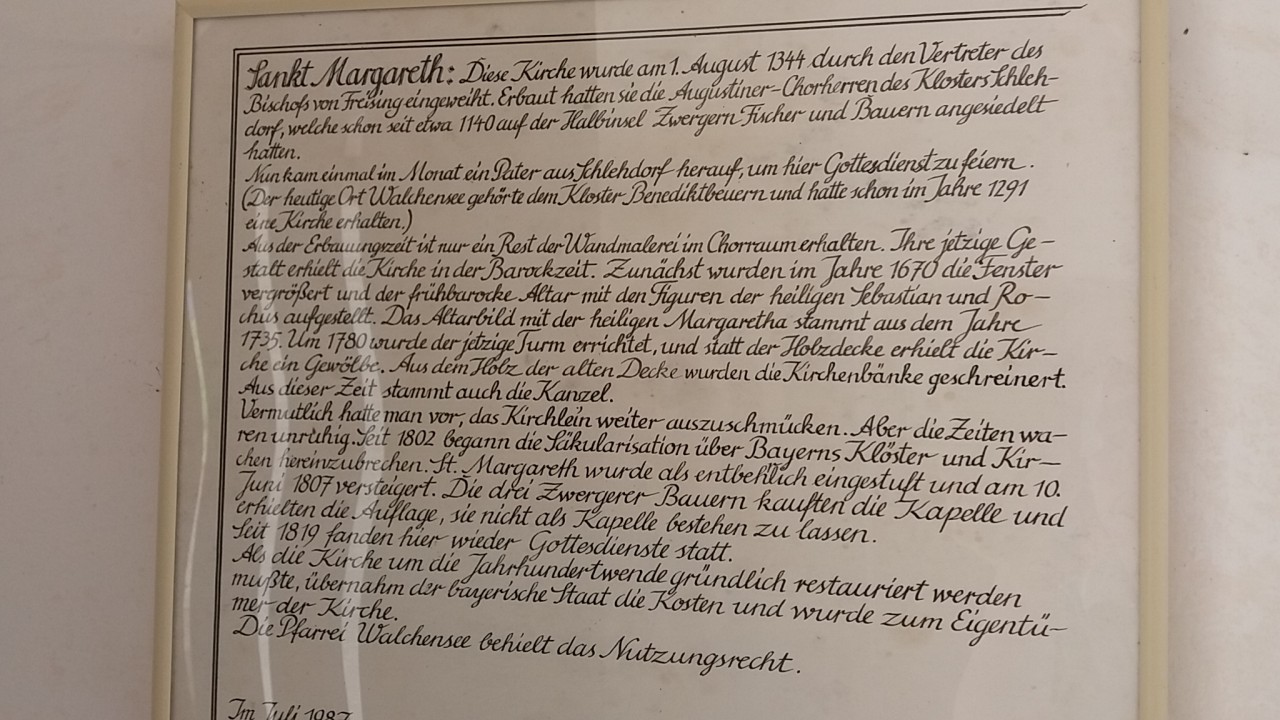 Sankt Margareth: Diese Kirche wurde am 1. August 1344 durch den Vertreter des
Bischofs von Freising eingeweiht. Erbaut hatten sie die Augustiner-Chorherren des Klosters Schleh-
dorf, welche schon seit etwa 1140 auf der Halbinsel Zwergern Fischer und Bauern angesiedelt
hatten.
Nun kam einmal im Monat ein Pater aus Schlehdorf herauf, um hier Gottesdienst zu feiern.
(Der heutige Ort Walchensee gehörte dem Kloster Benediktbeuern und hatte schon im Jahre 1291
eine Kirche erhalten.)
Aus der Erbauungszeit ist nur ein Rest der Wandmalerei im Chorraum erhalten. Ihre jetzige Ge-
stalt erhielt die Kirche in der Barockzeit. Zunächst wurden im Jahre 1670 die Fenster
vergrößert und der frühbarocke Altar mit den Figuren der heiligen Sebastian und Ro-
chus aufgestellt. Das Altarbild mit der heiligen Margaretha stammt aus dem Jahre
1735. Um 1780 wurde der jetzige Turm errichtet, und statt der Holzdecke erhielt die Kir-
che ein Gewölbe. Aus dem Holz der alten Decke wurden die Kirchenbänke geschreinert.
Aus dieser Zeit stammt auch die Kanzel.
Vermutlich hatte man vor, das Kirchlein weiter auszuschmücken. Aber die Zeiten wa-
ren unruhig. Seit 1802 begann die Säkularisation über Bayerns Klöster und Kir-
chen hereinzubrechen. St. Margareth wurde als entbehrlich eingestuft und am 10.
Juni 1807 versteigert. Die drei Zwergerer Bauern kauften die Kapelle und
erhielten die Auflage, sie nicht als Kapelle bestehen zu lassen.
Seit 1819 fanden hier wieder Gottesdienste statt.
Als die Kirche um die Jahrhundertwende gründlich restauriert werden
mußte, übernahm der bayerische Staat die Kosten und wurde zum Eigentü-
mer der Kirche.
Die Pfarrei Walchensee behielt das Nutzungsrecht.
Im Juli 1987